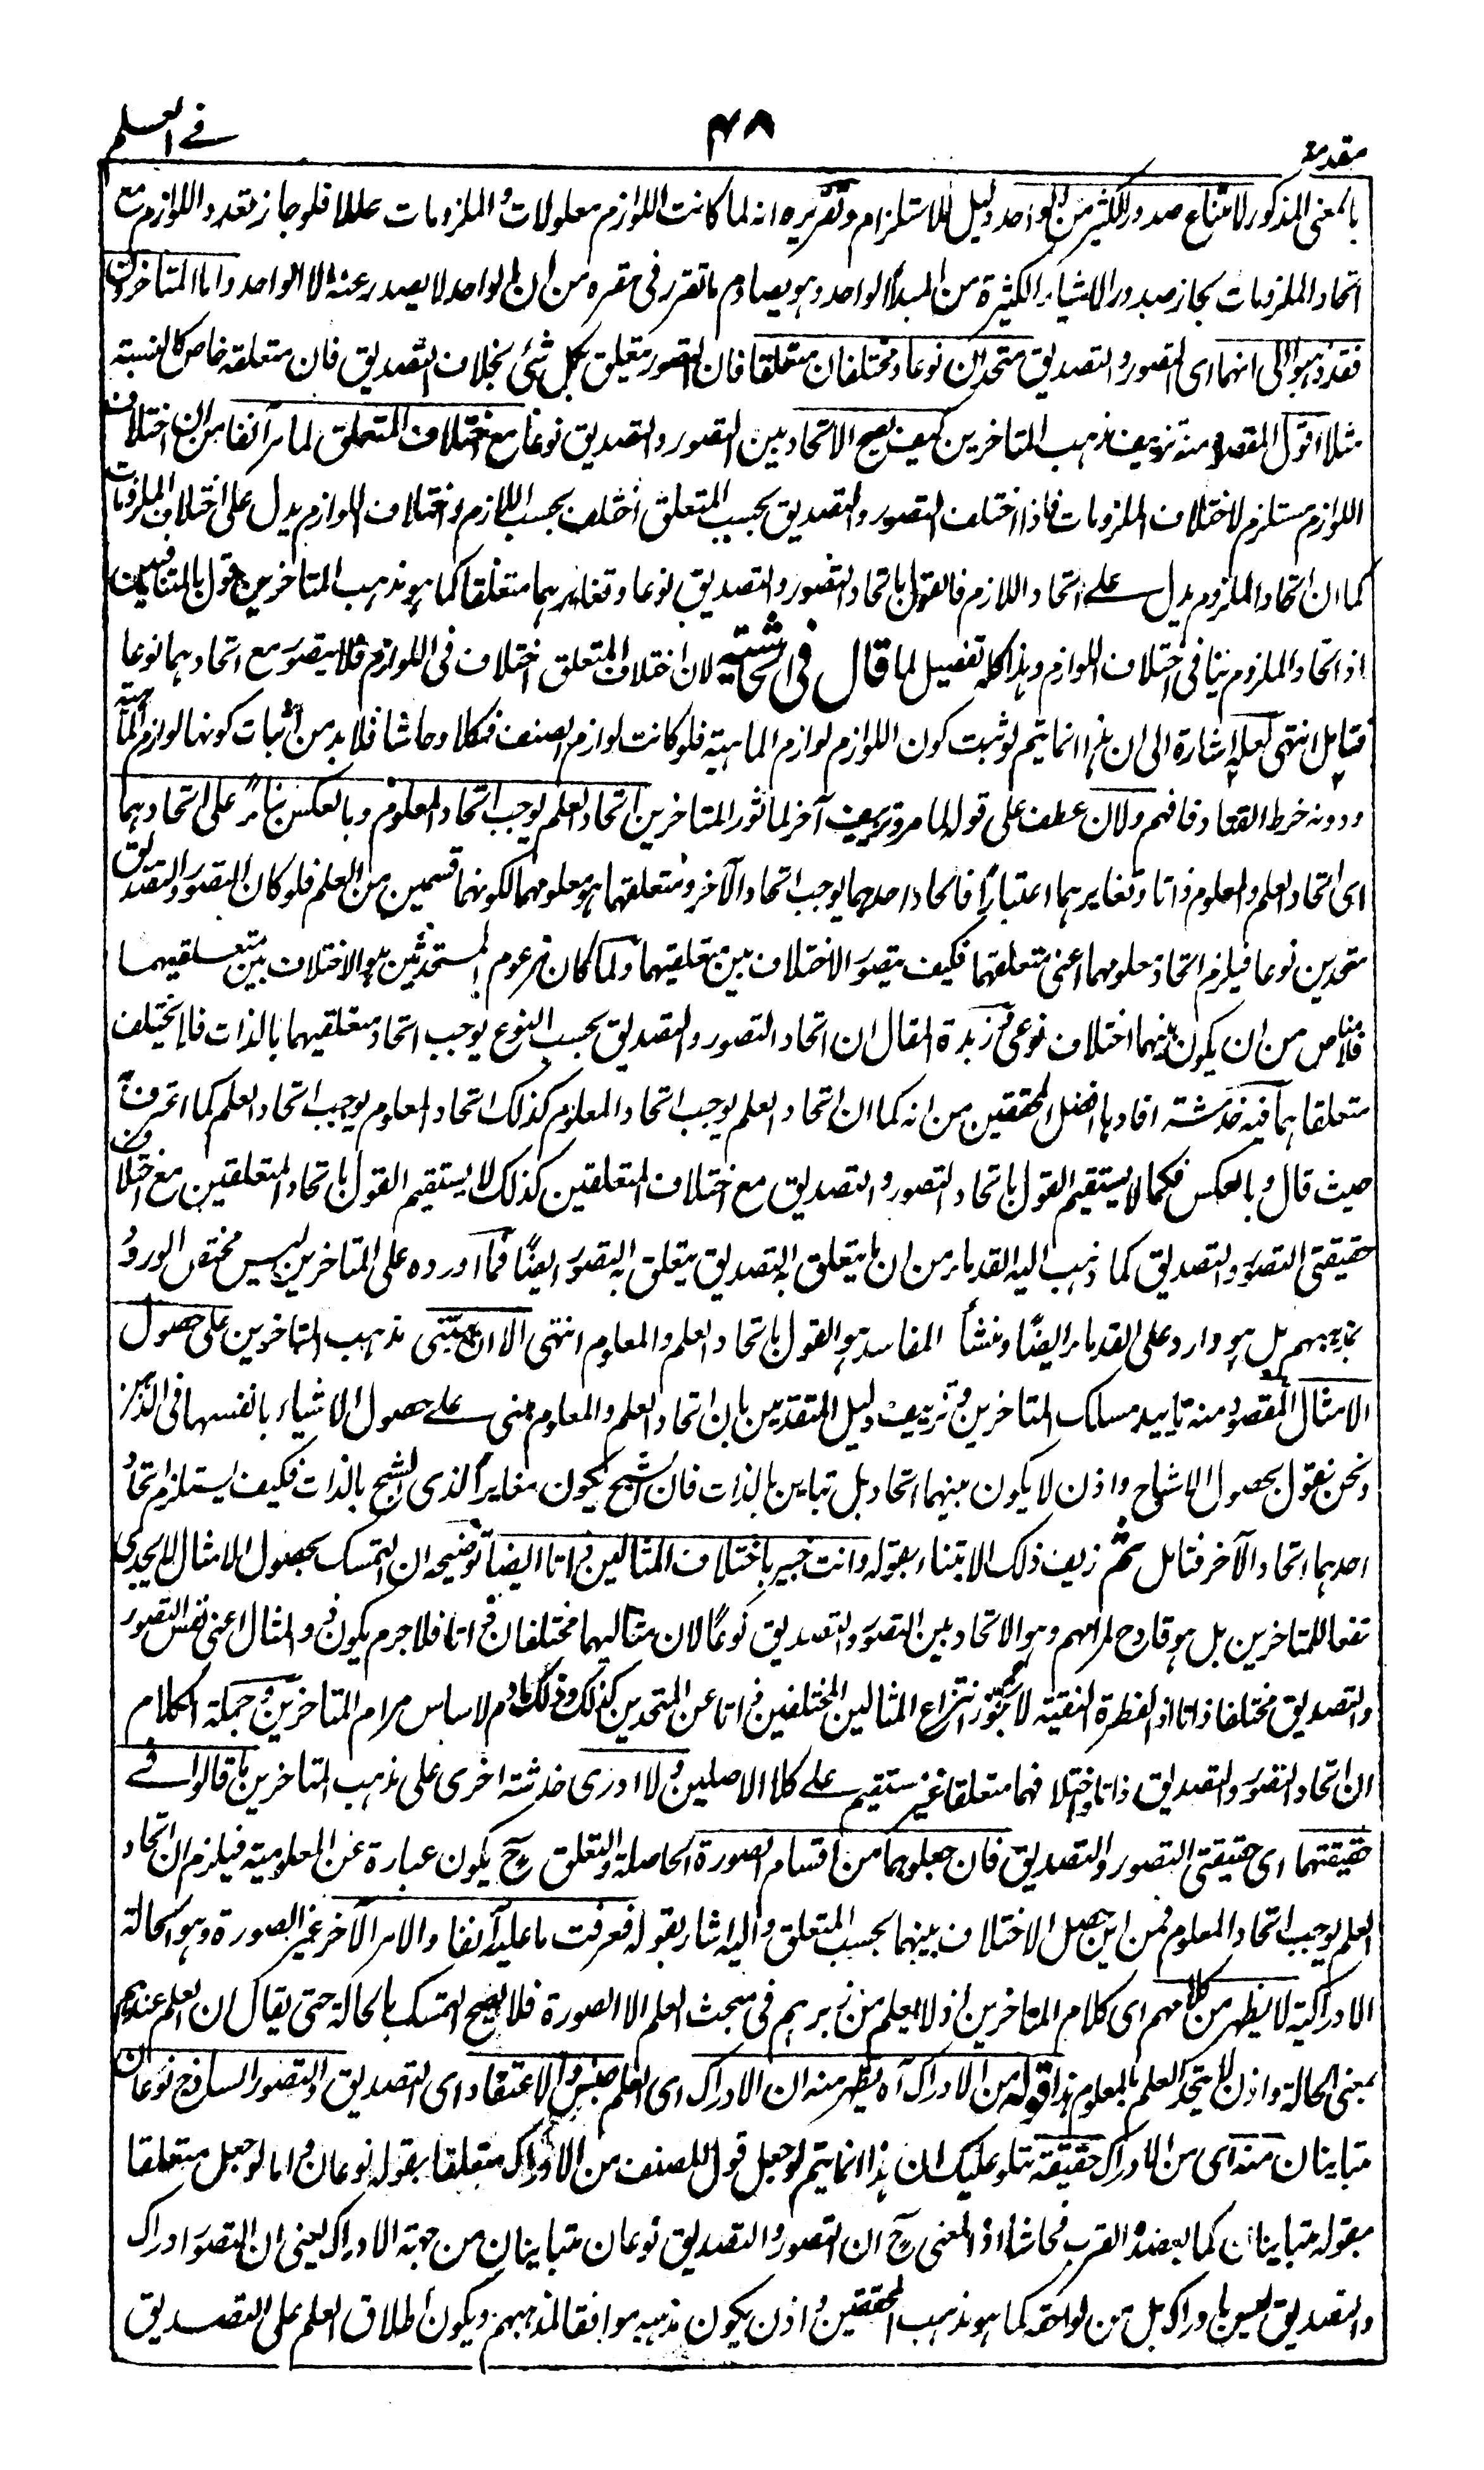 مقدمة
۴۸
في العلم
بالمعنى المذكور لامتناع صدور الكثير من الواحد دليل للاستلزام وتقريره انه لما كانت اللوازم معلولات والملزومات عللا فلو جاز تعدد اللوازم مع
اتحاد الملزومات لجاز صدور الاشياء الكثيرة من المبدأ الواحد وهو يصادم ما تقرر في مقره من ان الواحد لا يصدر عنه الا الواحد واما المتاخرون
فقد ذهبوا الى انهما اى التصور والتصديق متحدان نوعا ومختلفان متعلقا فان التصور متعلق بكل شئ بخلاف التصديق فان متعلقه خاص كالنسبة
مثلا اقول المقصود منه تزييف مذهب المتاخرين كيف يصح الاتحاد بين التصور والتصديق نوعا مع اختلاف المتعلق لما مر آنفا من ان اختلاف
اللوازم مستلزم لاختلاف الملزومات فاذا اختلف التصور والتصديق بحسب المتعلق اختلف بحسب اللازم واختلاف اللوازم يدل على اختلاف الملزومات
كما ان اتحاد الملزوم يدل على اتحاد اللازم فالقول باتحاد التصور والتصديق نوعا وتغايرهما متعلقا كما هو مذهب المتاخرين قول بالمتنافيين
اذ اتحاد الملزوم ينافي اختلاف اللوازم وهذا كله تفصيل لما قال في الحاشية لان اختلاف المتعلق اختلاف في اللوازم فلا يتصور مع اتحادهما نوعا
فتامل انتهى لعله اشارة الى ان هذا انما يتم لو ثبت كون اللوازم لوازم الماهية فلو كانت لوازم الصنف فكلا وحاشا فلابد من اثبات كونها لوازم الماهية
ودونه خرط القتاد فافهم ولان عطف على قوله لما مر وتزييف آخر لما ثور المتاخرين اتحاد العلم يوجب اتحاد المعلوم وبالعكس بناء على اتحادهما
اى اتحاد العلم والمعلوم ذاتا وتغايرهما اعتبارا فاتحاد احدهما يوجب اتحاد الآخر ومتعلقهما هو معلومهما لكونهما قسمين من العلم فلو كان التصور والتصديق
متحدين نوعا فيلزم اتحاد معلومهما اعنى متعلقهما فكيف يتصور الاختلاف بين متعلقيهما ولما كان مزعوم المستحدثين هو الاختلاف بين متعلقيهما
فلا مناص من ان يكون بينهما اختلاف نوعى فزبدة المقال ان اتحاد التصور والتصديق بحسب النوع يوجب اتحاد متعلقيهما بالذات فلا يختلف
متعلقاهما فيه خدشة افادها افضل المحققين من انه كما ان اتحاد العلم يوجب اتحاد المعلوم كذلك اتحاد المعلوم يوجب اتحاد العلم كما اعترف
حيث قال وبالعكس فكما لا يستقيم القول باتحاد التصور والتصديق مع اختلاف المتعلقين كذلك لا يستقيم القول باتحاد المتعلقين مع اختلاف
حقيقتى التصور والتصديق كما ذهب اليه القدماء من ان ما يتعلق به التصديق يتعلق به التصور ايضا فما اورده على المتاخرين ليس مختص الورود
بمذهبهم بل هو وارد على القدماء ايضا ومنشأ المفاسد هو القول باتحاد العلم والمعلوم انتهى الا ان يبتنى مذهب المتاخرين على حصول
الامثال المقصود منه تاييد مسلك المتاخرين وتزييف دليل المتقدمين بان اتحاد العلم والمعلوم مبنى على حصول الاشياء بانفسها في الذهن
ونحن نقول بحصول الاشباح واذن لا يكون بينهما اتحاد بل تباين بالذات فان الشبح يكون مغايرا لذى الشبح بالذات فكيف يستلزم اتحاد
احدهما اتحاد الآخر فتامل ثم زيف ذلك الابتناء بقوله وانت خبير باختلاف المثالين ذاتا ايضا توضيحه ان التمسك بحصول الامثال لا يجدى
نفعا للمتاخرين بل هو قادح لمرامهم وهو الاتحاد بين التصور والتصديق نوعا لان مثاليهما مختلفان ذاتا فلا جرم يكون ذو المثال اعنى نفس التصور
والتصديق مختلفا ذاتا اذ الفطرة النقية لا تجوز انتزاع المثالين المختلفين ذاتا عن المتحدين كذلك وذلك هادم لاساس مرام المتاخرين وجملة الكلام
ان اتحاد التصور والتصديق ذاتا واختلافهما متعلقا غير مستقيم على كلا الاصلين ولا ادرى خدشة اخرى على مذهب المتاخرين ما قالوا في
حقيقتهما اى حقيقتى التصور والتصديق فان جعلوهما من اقسام الصورة الحاصلة والتعلق ح يكون عبارة عن المعلومية فيلزم ان اتحاد
العلم يوجب اتحاد المعلوم فمن اين حصل الاختلاف بينهما بحسب المتعلق واليه اشار بقوله فعرفت ما عليه آنفا والامر الآخر غير الصورة وهو الحالة
الادراكية لا يظهر من كلامهم اى كلام المتاخرين اذ لا يعلم من زبرهم في مبحث العلم الا الصورة فلا يصح التمسك بالحالة حتى يقال ان العلم عندهم
بمعنى الحالة واذن لا يتحد العلم بالمعلوم هذا قوله من الادراك آه يظهر منه ان الادراك اى العلم جنس والاعتقاد اى التصديق والتصور الساذج نوعان
متباينان منه اى من الادراك حقيقة نتلو عليك ان هذا انما يتم لو جعل قول المصنف من الادراك متعلقا بقوله نوعان واما لو جعل متعلقا
بقوله متباينان كما يعضده القرب فحاشا اذ المعنى ح ان التصور والتصديق نوعان متباينان من جهة الادراك يعنى ان التصور ادراك
والتصديق ليس بادراك بل من لواحقه كما هو مذهب المحققين واذن يكون مذهبه موافقا لمذهبهم ويكون اطلاق العلم على التصديق